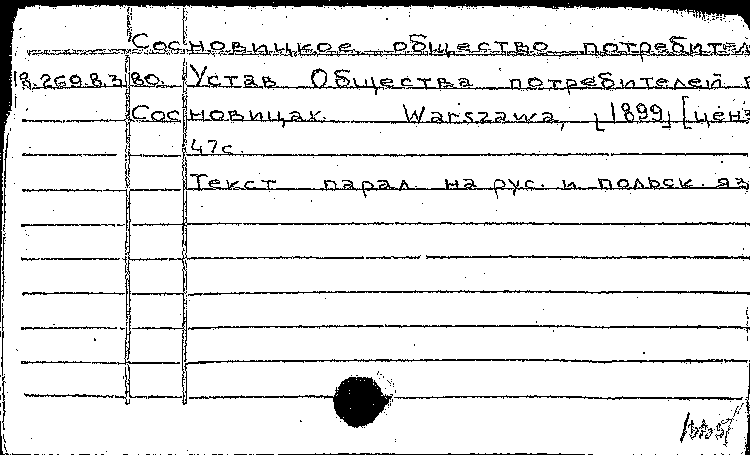 Сосновицкое общество потребител
8.269.8.3.80. Устав Общества потребителей в
Сосновицах. Warszawa, [1899] [ценз
47с.
Текст парал. на рус. и польск. яз